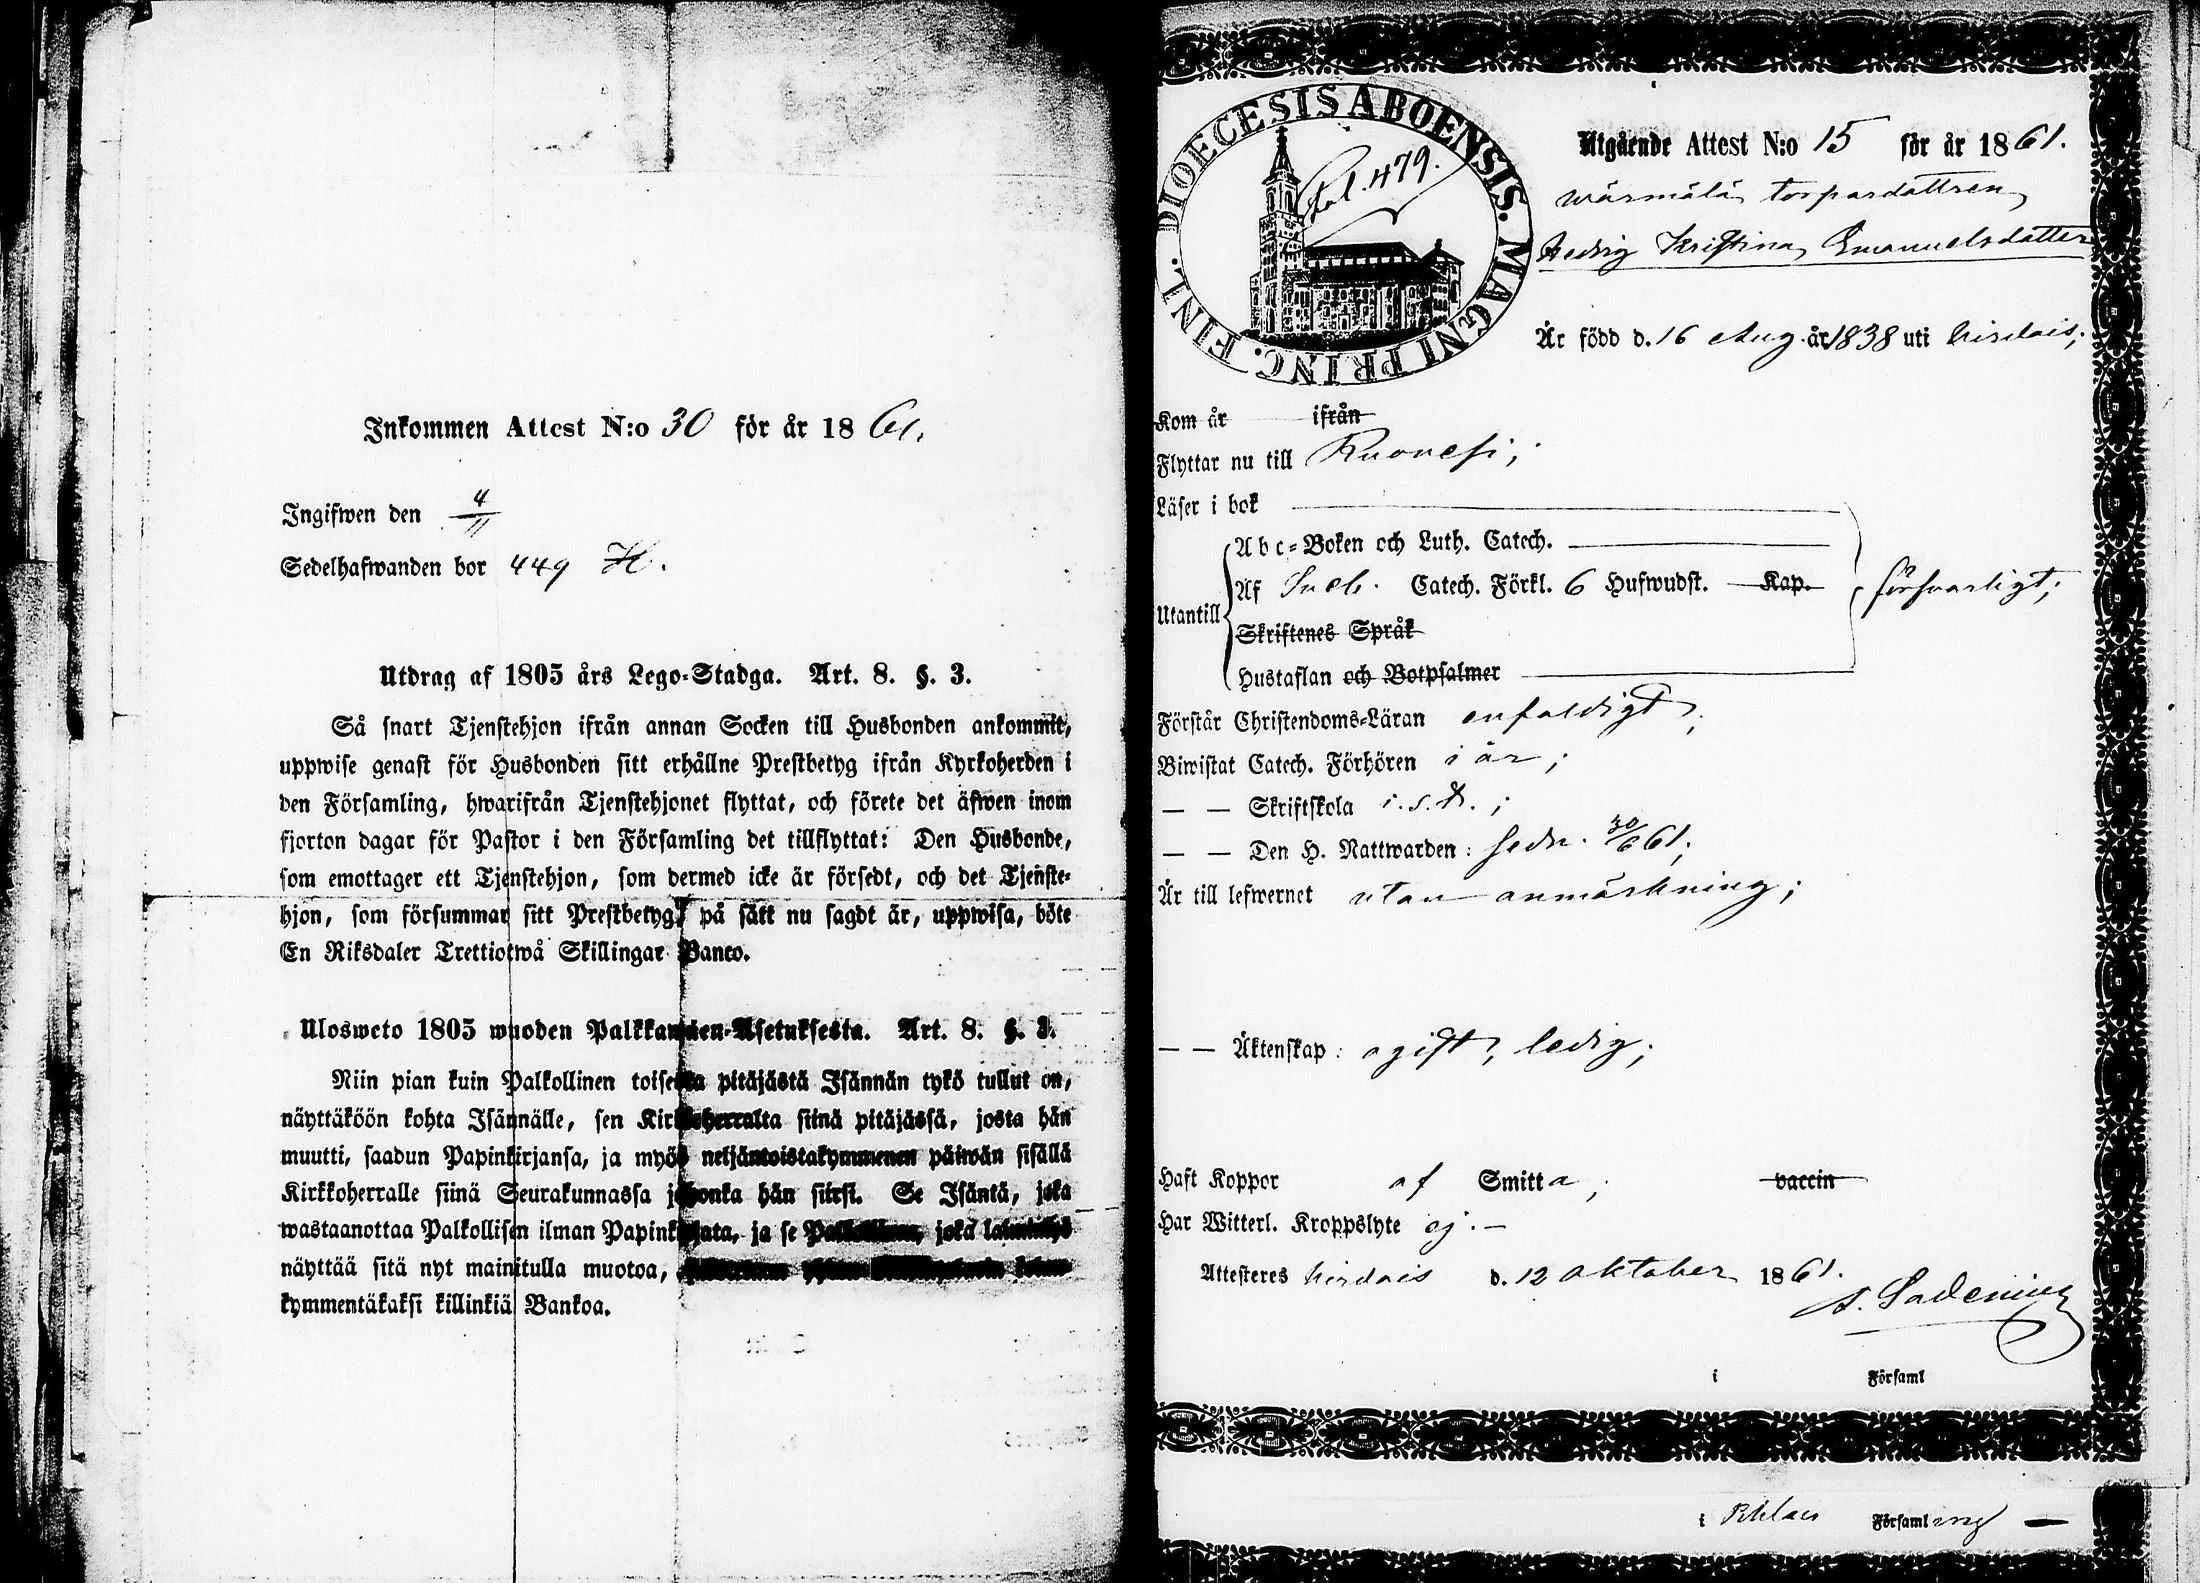 Inkommen Attest N:o 30 för år 1861.
Ingifwen den 4/11
Sedelhafwanden bor 449 H.
Utdrag af 1805 års Lego-Stadga. Art. 8. §. 3.
Så snart Tjenstehjon ifrån annan Socken till Husbonden ankommit,
uppwise genast för Husbonden sitt erhållne Prestbetyg ifrån Kyrkoherden i
den Församling, hwarifrån Tjenstehjonet flyttat, och förete det äfwen inom
fjorton dagar för Pastor i den Församling det tillflyttat: Den Husbonde,
som emottager ett Tjenstehjon, som dermed icke är försedt, och det Tjenste-
hjon, som försummar sitt Prestbetyg, på sätt nu sagdt är, uppwisa, böte
En Riksdaler Trettiotwå Skillingar Banco.
Ulosweto 1805 wuoden Palkkawäen-Asetuksesta. Art. 8. §. 3.
Niin pian kuin Palkollinen toisesta pitäjästä Isännän tykö tullut on,
näyttäköön kohta Isännälle, sen Kirkkoherralta siinä pitäjässä, josta hän
muutti, saadun Papinkirjansa, ja myös neljäntoistakymmenen päiwän sisällä
Kirkkoherralle siinä Seurakunnassa johonka hän siirsi. Se Isäntä, joka
wastaanottaa Palkollisen ilman Papinkirjata, ja se Palkollinen, joka laiminlyö
näyttää sitä nyt mainitulla muotoa,
kymmentäkaksi killinkiä Bankoa.
DIOECESIS ABOENSIS. MAGNI PRINC. FINL.
Fol. 479.
Utgående Attest N:o 15 för år 1861.
Wärmälä torpardottren
Hedvig Kristina Emanuelsdotter
Är född d. 16 Aug. år 1838 uti Virdois;
Kom år ifrån
Flyttar nu till Ruovesi;
Läser i bok
Abc-Boken och Luth. Catech.
Utantill
Af Sveb. Catech. Förkl. 6 Hufwudst. Kap.
försvarligt;
Skriftenes Språk
Hustaflan och Botpsalmer
Förstår Christendoms-Läran enfaldigt;
Biwistat Catech. Förhören i år;
— — Skriftskola i. s. d.;
— — Den H. Nattwarden: sedn. 30/6 61;
Är till lefwernet utan anmärkning;
— — Äktenskap: ogift, ledig;
Haft Koppor af Smitta; vaccin
Har Witterl. Kroppslyte ej. —
Attesteres Virdois d. 12 oktober 1861.
i Församl
i Församling —